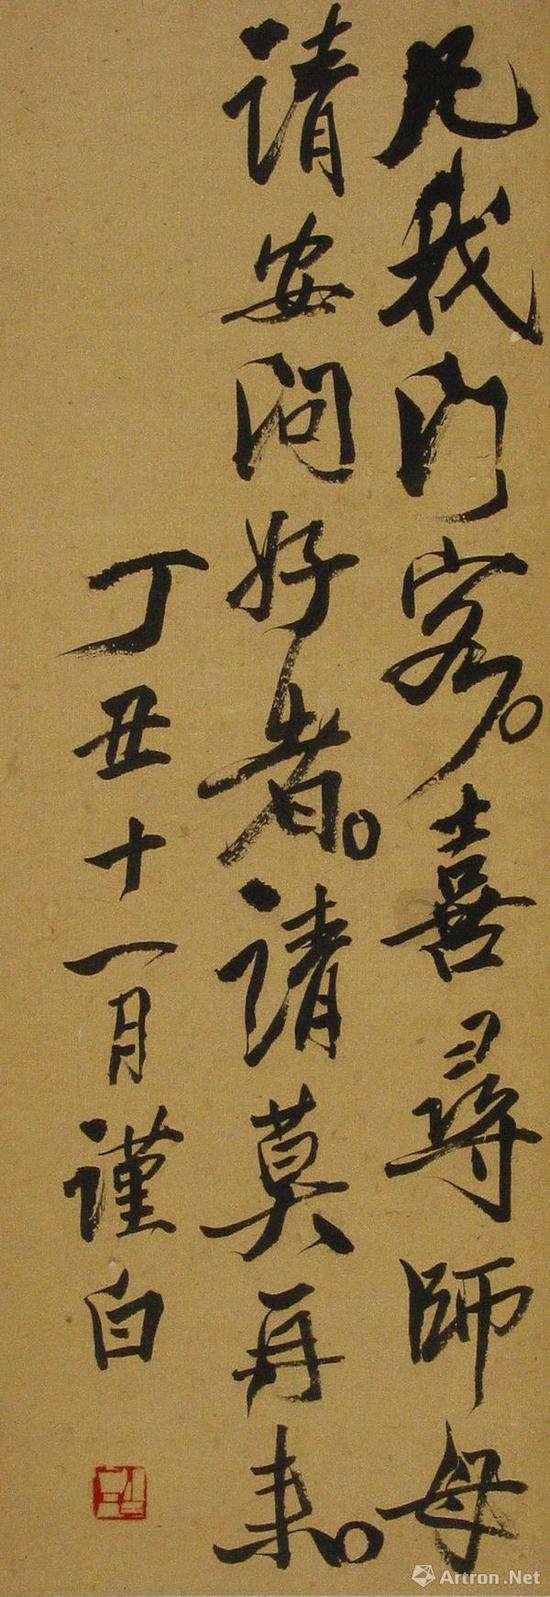 凡我门客。喜尋師母
请安问好者。请莫再来。
丁丑十一月谨白
Artron.Net